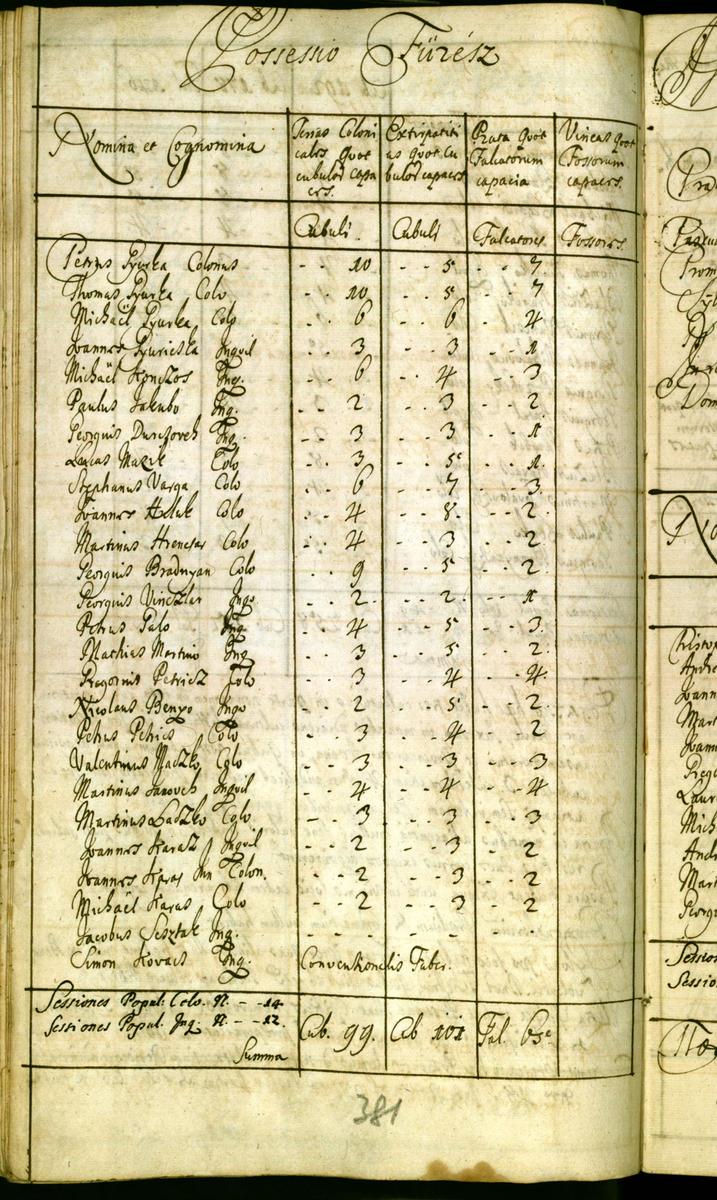 Possessio Fürész
Nomina et Cognomina
Terras Coloni
cales quot
cubulos capa
ces.
Extirpatiti
as quot cu
bulos capaces
Prata quot
Falcatorum
capacia
Vineas quot
Fossorum
capaces.
Cubuli. Cubuli Falcatores Fossores.
Petrus Gyurka Colonus - - 10 - - 5 - - 7
Thomas Gyurka Colo - - 10 - - 5 - - 7
Michaël Gyurka Colo - - 6 - - 6 - - 4
Joannes Gyuricska Inquil - - 3 - - 3 - - 1
Michaël Konczos Inq. - - 6 - - 4 - - 3
Paulus Jakubo Inq. - - 2 - - 3 - - 2
Georgius Inq. - - 3 - - 3 - - 1
Lucas Mazik Colo - - 3 - - 5 - - 1
Stephanus Varga Colo - - 6 - - 7 - - 3
Joannes Colo - - 4 - - 8 - - 2
Martinus Hrencsar Colo - - 4 - - 3 - - 2
Georgius Bradnyan Colo - - 9 - - 5 - - 2
Georgius Vinczlar Inqu - - 2 - - 2 - - 1
Petrus Palo Inq - - 4 - - 5 - - 3
Mathias Martino Inq - - 3 - - 5 - - 2
Gregorius Petrics Colo - - 3 - - 4 - - 4
Nicolaus Benyo Inqu - - 2 - - 5 - - 2
Petrus Petrics Colo - - 3 - - 4 - - 2
Valentinus Maczko Colo - - 3 - - 3 - - 3
Martinus Janovch Inquil - - 4 - - 4 - - 4
Martinus Laczko Colo - - 3 - - 3 - - 3
Joannes Karasz Inquil - - 2 - - 3 - - 2
Joannes Karas Jun Colon. - - 2 - - 3 - - 2
Michaël Karas Colo - - 2 - - 3 - - 2
Jacobus Sesztak Inq. - - - - - - - -
Simon Kovacs Inq. Conventionalis Faber.
Sessiones Popul: Colo. N. - - 14
Sessiones Popul. Inq: N. - - 12.
Summa Cub. 99. Cub 101 Fal. 65
381